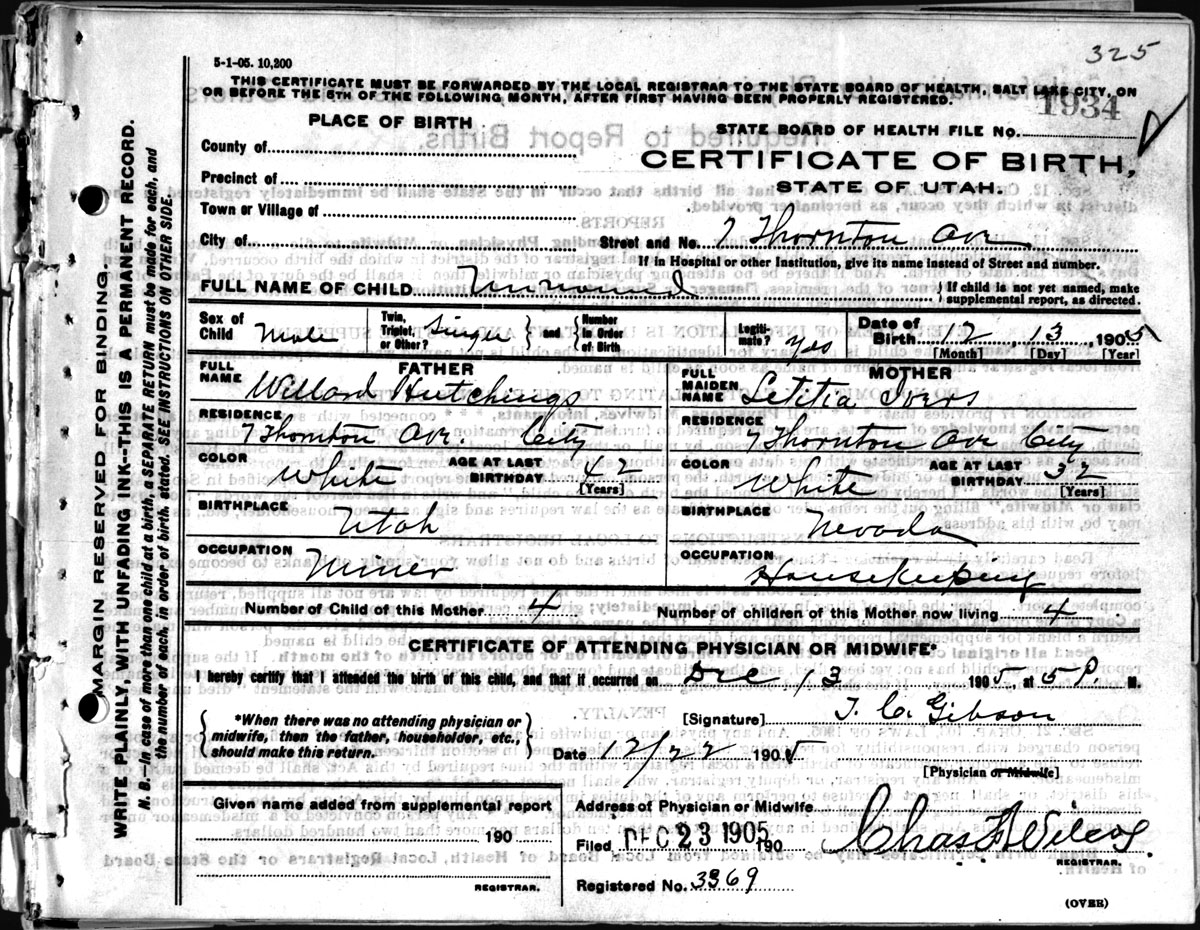 325
5-1-05. 10,200
THIS CERTIFICATE MUST BE FORWARDED BY THE LOCAL REGISTRAR TO THE STATE BOARD OF HEALTH, SALT LAKE CITY, ON
OR BEFORE THE 5TH OF THE FOLLOWING MONTH, AFTER FIRST HAVING BEEN PROPERLY REGISTERED.
1934
PLACE OF BIRTH
STATE BOARD OF HEALTH FILE No.
County of
CERTIFICATE OF BIRTH,
Precinct of
STATE OF UTAH.
Town or Village of
City of
Street and No. 7 Thornton Ave
If in Hospital or other Institution, give its name instead of Street and number.
FULL NAME OF CHILD Unnamed
If child is not yet named, make
supplemental report, as directed.
Sex of Child Male
Twin, Triplet, or Other? Single
and
Number in Order of Birth
Legitimate? Yes
Date of Birth 12, 13, 1905
[Month] [Day] [Year]
FATHER
FULL NAME Willard Hutchings
MOTHER
FULL MAIDEN NAME Letitia Ivers
RESIDENCE
7 Thornton Ave. City
RESIDENCE
7 Thornton Ave City
COLOR White
AGE AT LAST BIRTHDAY 42
[Years]
COLOR White
AGE AT LAST BIRTHDAY 32
[Years]
BIRTHPLACE Utah
BIRTHPLACE Nevada
OCCUPATION Miner
OCCUPATION Housekeeping
Number of Child of this Mother 4
Number of children of this Mother now living 4
CERTIFICATE OF ATTENDING PHYSICIAN OR MIDWIFE*
I hereby certify that I attended the birth of this child, and that it occurred on Dec 13 1905, at 5 P. M.
*When there was no attending physician or
midwife, then the father, householder, etc.,
should make this return.
[Signature] T. C. Gibson
Date 12/22 1905
[Physician or Midwife]
Given name added from supplemental report
190
REGISTRAR.
Address of Physician or Midwife
Filed DEC 23 1905 190
Chas F Wilcox.
REGISTRAR.
Registered No. 3369
(OVER)
MARGIN RESERVED FOR BINDING.
WRITE PLAINLY WITH UNFADING INK--THIS IS A PERMANENT RECORD.
N. B.--In case of more than one child at a birth, a SEPARATE RETURN must be made for each, and
the number of each, in order of birth, stated. SEE INSTRUCTIONS ON OTHER SIDE.